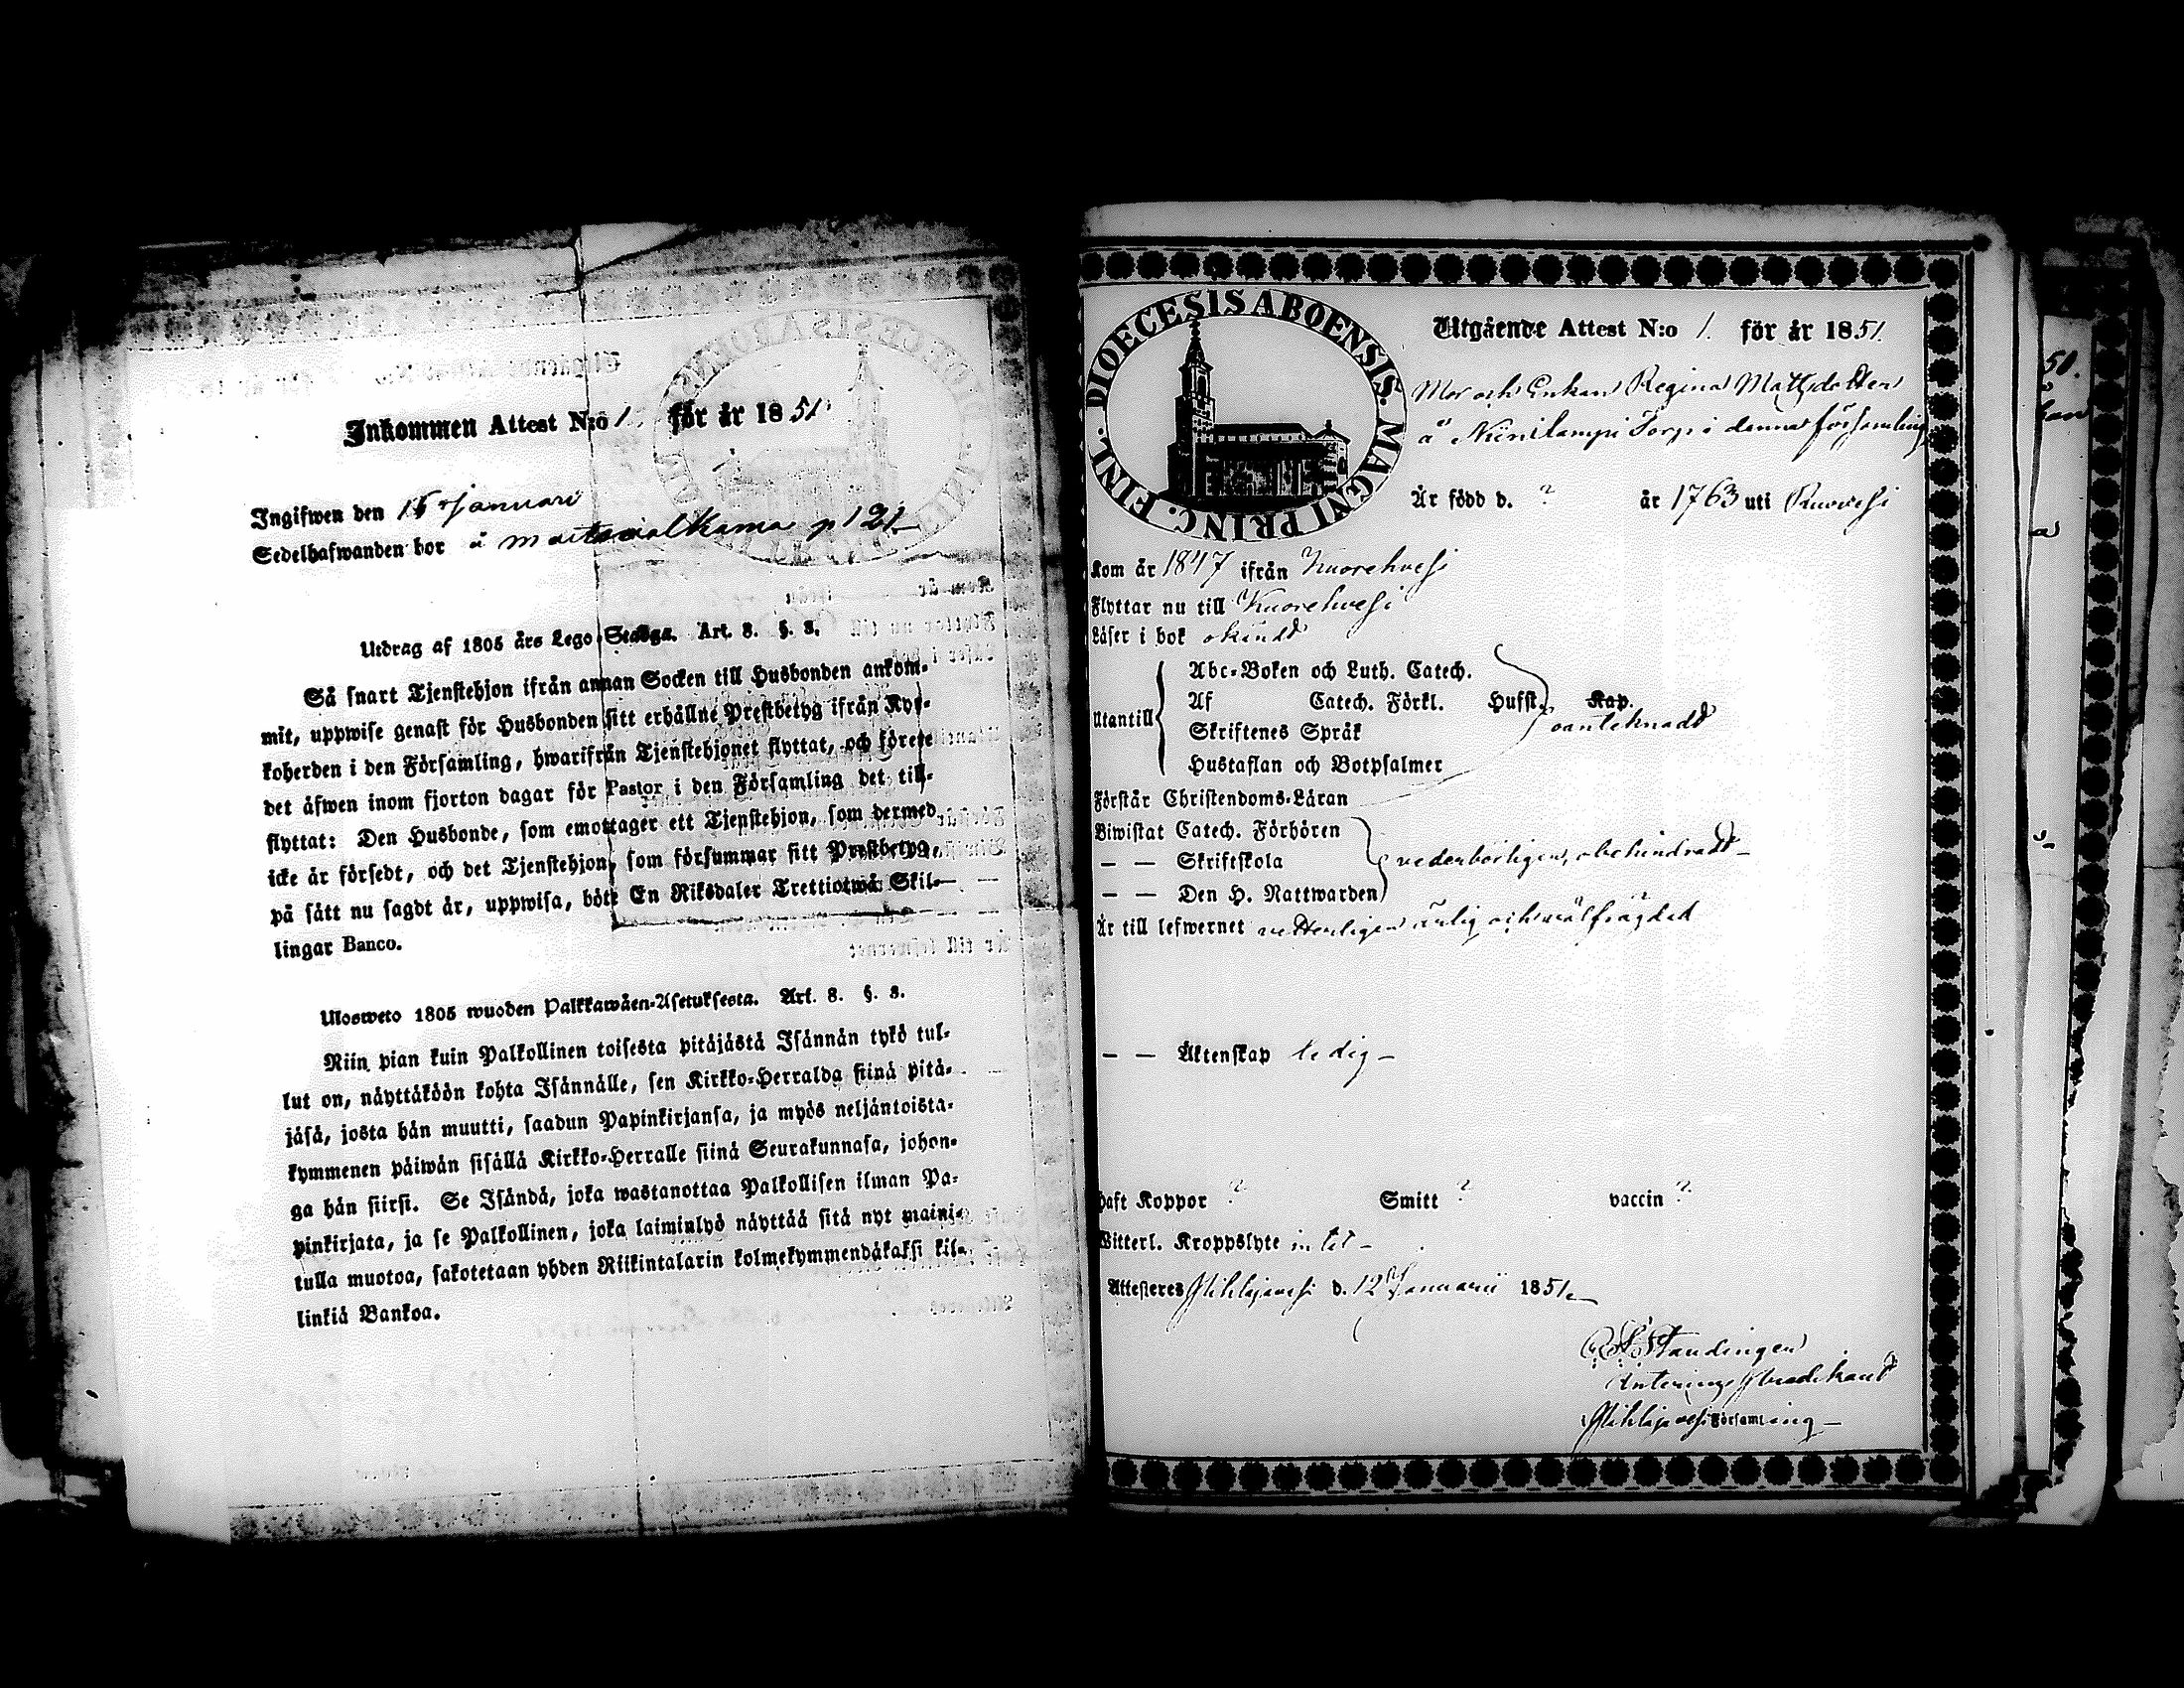 Inkommen Attest N:o 1. för år 1851.
Ingifwen den 15 Januari
Sedelhafwanden bor å p 121
Utdrag af 1805 års Lego-Stadga. Art. 8. §. 3.
Så snart Tjenstehjon ifrån annan Socken till Husbonden ankom-
mit, uppwise genast för Husbonden sitt erhållne Prestbetyg ifrån Kyr-
koherden i den Församling, hwarifrån Tjenstehjonet flyttat, och förete
det äfwen inom fjorton dagar för Pastor i den Församling det till-
flyttat: Den Husbonde, som emottager ett Tjenstehjon, som dermed
icke är försedt, och det Tjenstehjon, som försummar sitt Prestbetyg,
på sätt nu sagdt är, uppwisa, böte En Riksdaler Trettiotwå Skil-
lingar Banco.
Ulosweto 1805 wuoden Palkkawäen-Asetuksesta. Art. 8. §. 3.
Niin pian kuin Palkollinen toisesta pitäjästä Isännän tykö tul-
lut on, näyttäköön kohta Isännälle, sen Kirkko-Herralda siinä pitä-
jäsä, josta hän muutti, saadun Papinkirjansa, ja myös neljäntoista-
kymmenen päiwän sisällä Kirkko-Herralle siinä Seurakunnasa, johon-
ga hän siirsi. Se Isändä, joka wastanottaa Palkollisen ilman Pa-
pinkirjata, ja se Palkollinen, joka laiminlyö näyttää sitä nyt maini-
tulla muotoa, sakotetaan yhden Riikintalarin kolmekymmendäkaksi kil-
linkiä Bankoa.
DIOECESIS ABOENSIS MAGNI PRINC. FINL.
Utgående Attest N:o 1. för år 1851.
Mor och Enkan Regina Mattsdotter
å Niinilampi Torp i denna församling
Är född d. ? år 1763 uti Ruovesi
Kom år 1847 ifrån Kuorehvesi
Flyttar nu till Kuorehvesi
Läser i bok okändt
Abc-Boken och Luth. Catech.
Utantill Af Catech. Förkl. Husst. Kap.
Skriftenes Språk oanteknadt
Hustaflan och Botpsalmer
Förstår Christendoms-Läran
Biwistat Catech. Förhören
— — Skriftskola vederbörligen, obehindradt
— — Den H. Nattwarden
Är till lefwernet vetterligen ärlig och wälfrägdad
— — Äktenskap ledig
Haft Koppor ? Smitt ? vaccin ?
Witterl. Kroppslyte intet
Attesteres Pihlajavesi d. 12 Januarii 1851
Pihlajavesi Församling